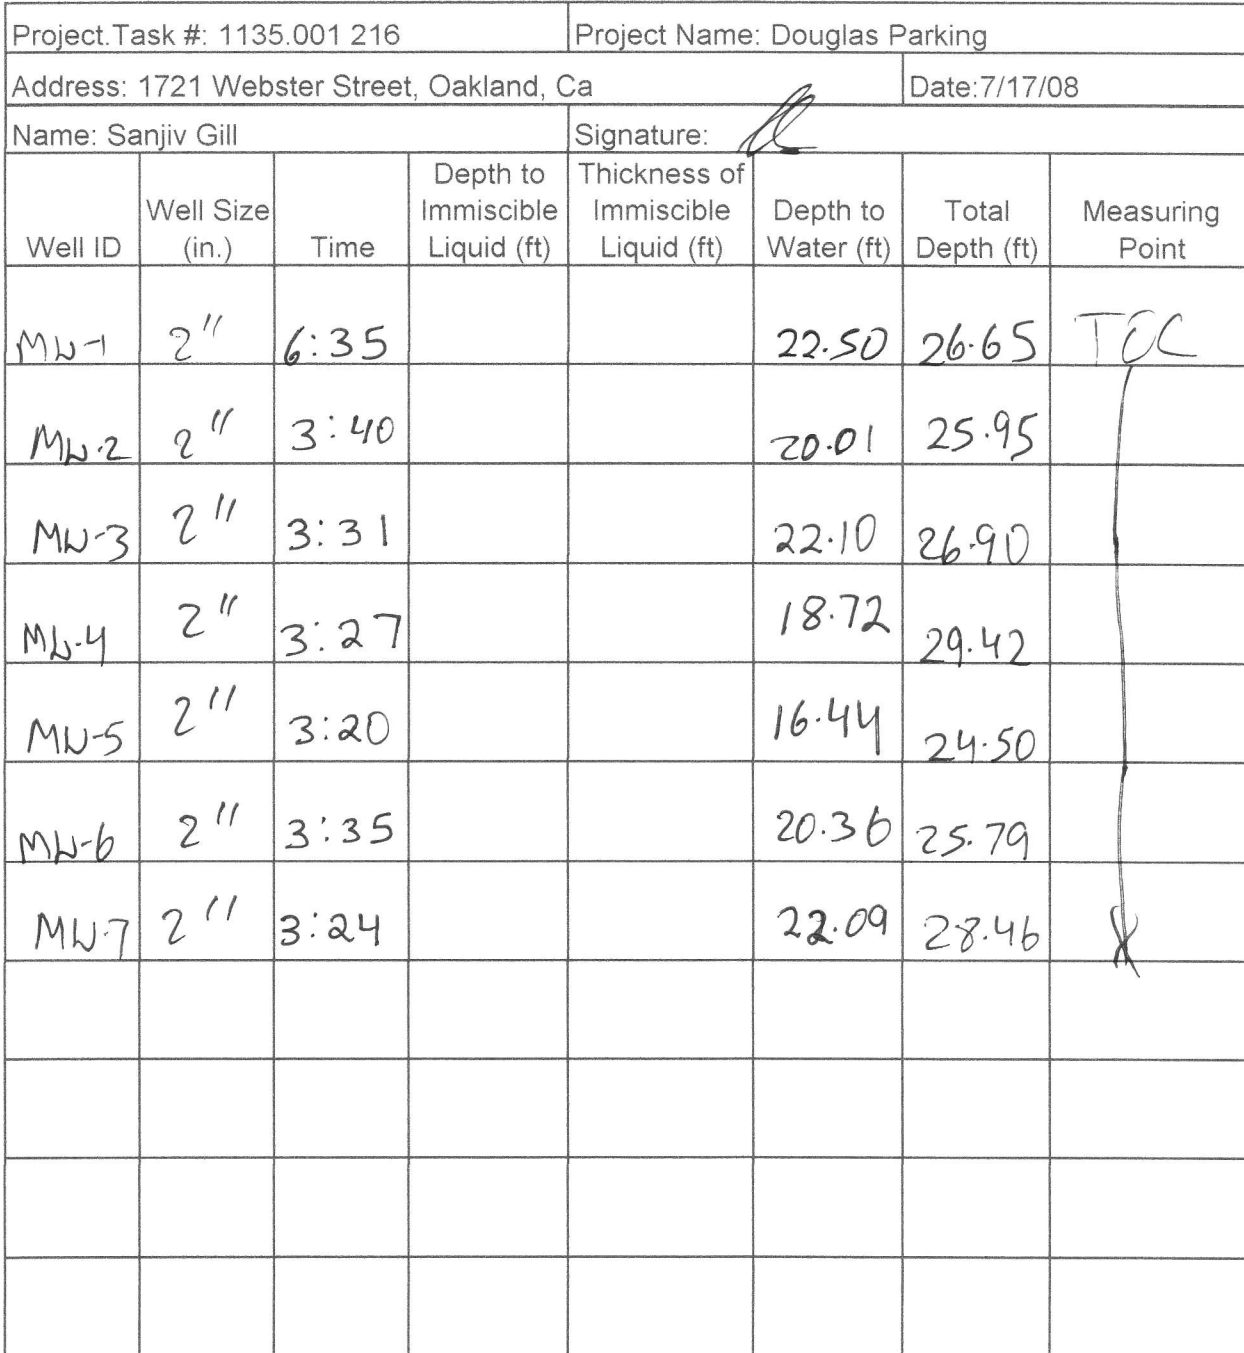 Project.Task #: 1135.001 216 Project Name: Douglas Parking
Address: 1721 Webster Street, Oakland, Ca Date:7/17/08
Name: Sanjiv Gill Signature:
Well ID Well Size (in.) Time Depth to Immiscible Liquid (ft) Thickness of Immiscible Liquid (ft) Depth to Water (ft) Total Depth (ft) Measuring Point
MW-1 2" 6:35 22.50 26.65 TOC
MW-2 2" 3:40 20.01 25.95
MW-3 2" 3:31 22.10 26.90
MW-4 2" 3:27 18.72 29.42
MW-5 2" 3:20 16.44 24.50
MW-6 2" 3:35 20.36 25.79
MW-7 2" 3:24 22.09 28.46